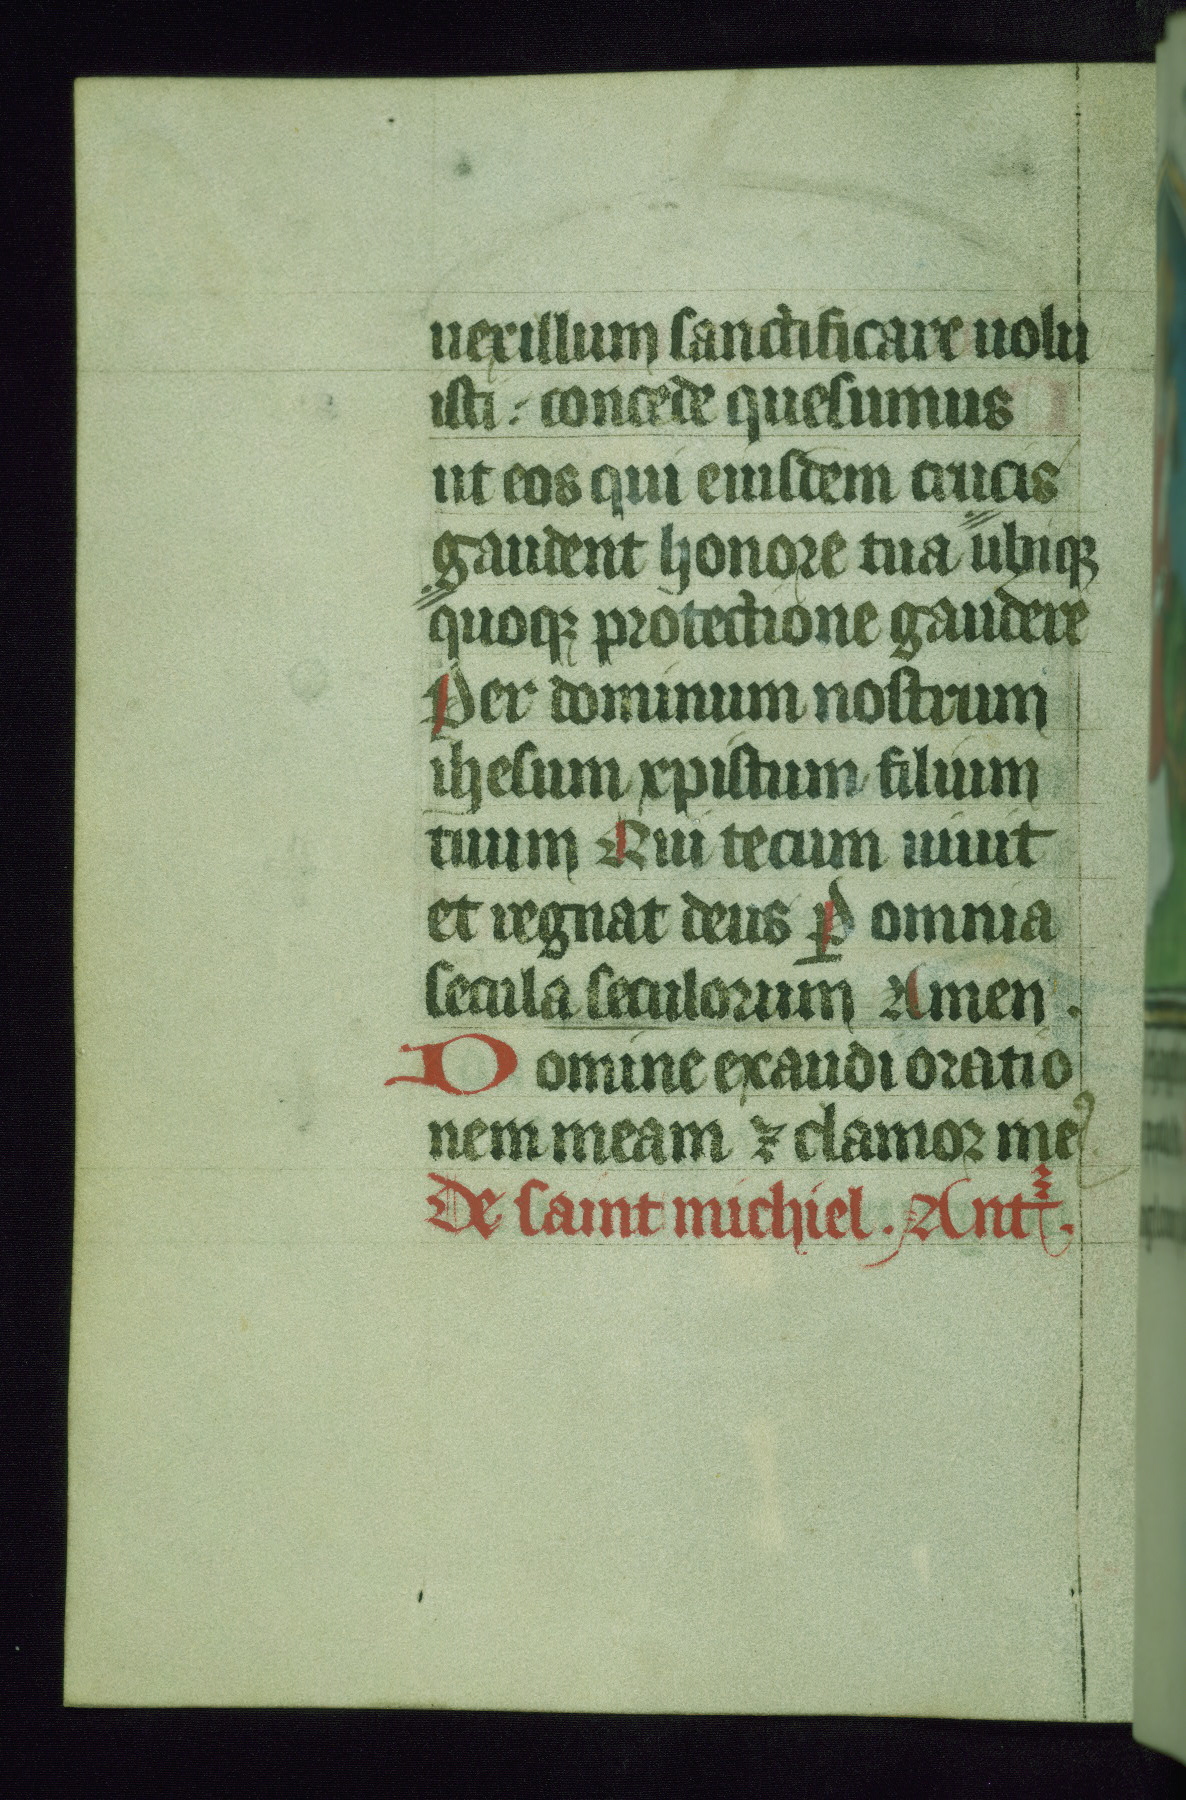 uexillum sanctificare uolu
isti : concede quesumus
ut eos qui eiusdem crucis
gaudent honore tua ubiqꝫ
quoqꝫ protectione gaudere
Per dominum nostrum
ihesum xpistum filium
tuum Qui tecum uiuit
et regnat deus Ꝑ omnia
secula seculorum Amen .
Domine exaudi oratio
nem meam ⁊ clamor meꝰ
De saint michiel . Antᷓ .